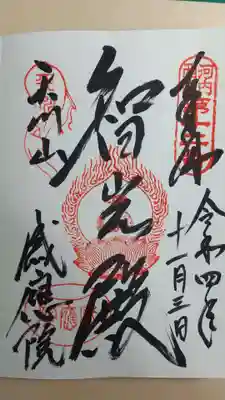 奉拝
令和四年
十一月三日
智光殿
天川山
感應院